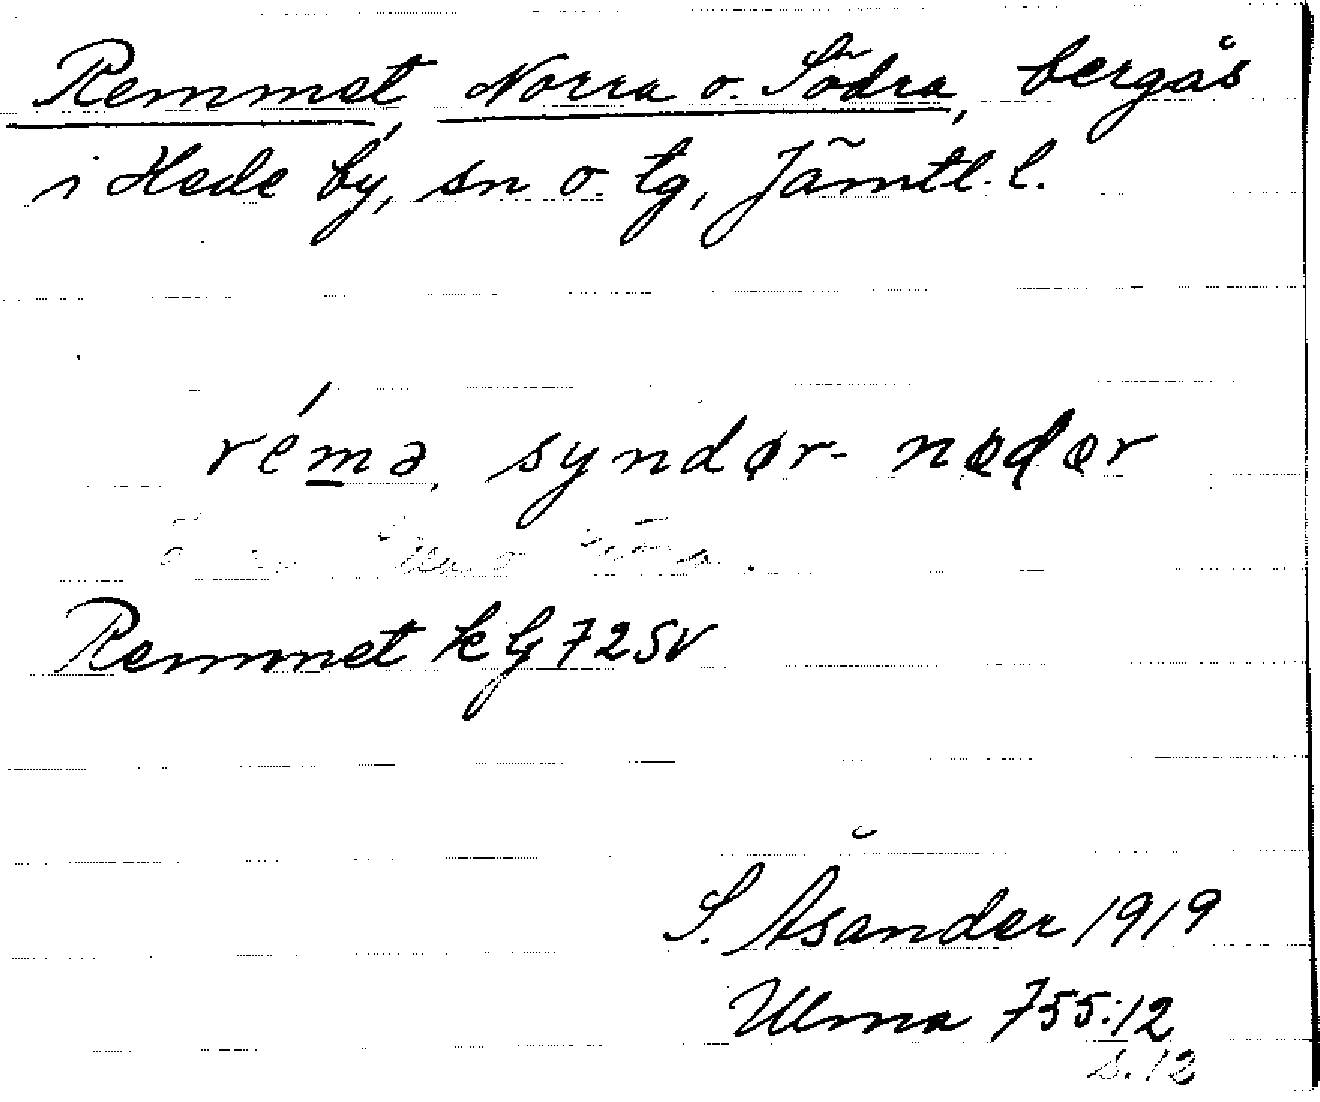 Remmet, Norra o. Södra, bergås
i Hede by, sn o. tg, Jämtl. l.
rémə, syndər- nədər
Remmet k bg 72SV
S. Åsander 1919
Ulma 755:12
s. 12